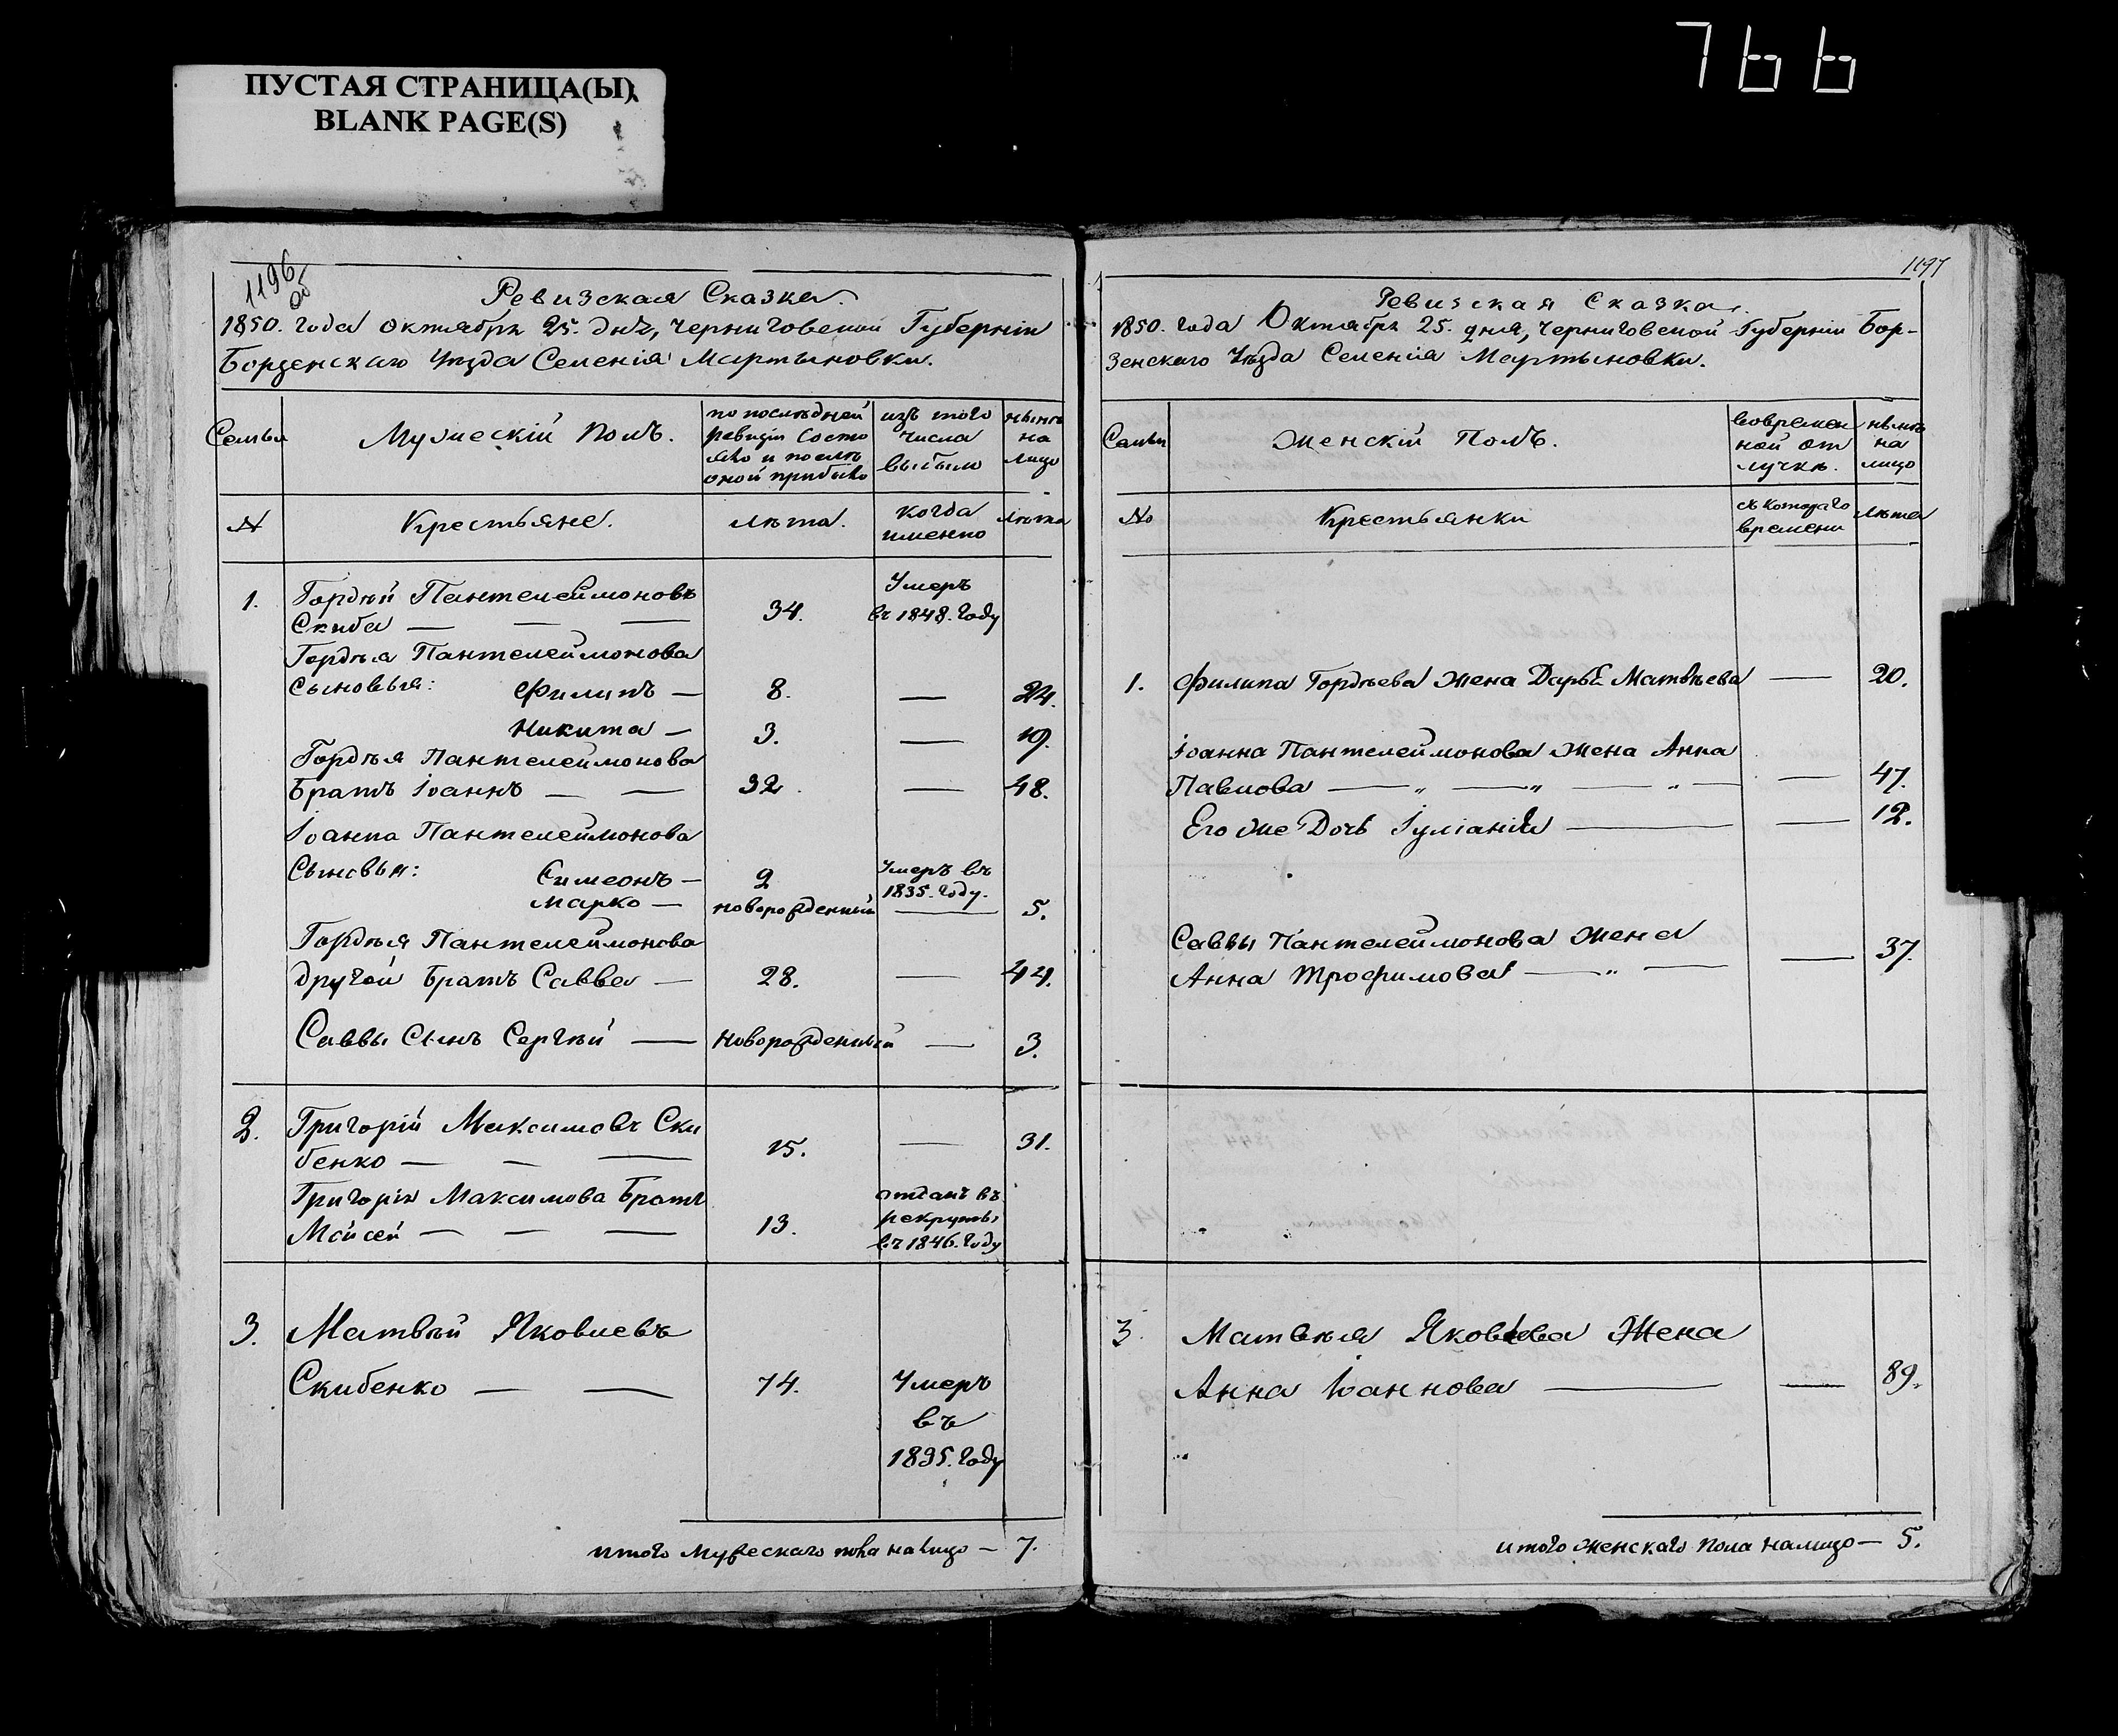 766
ПУСТАЯ СТРАНИЦА(Ы)
BLANK PAGE(S)
1196
об
Ревизская Сказка.
1850. года октября 25. дня, Черниговской Губерніи
Борзенскаго Уѣзда Селенія Мартыновки.
Семьи
Мужескій Полъ.
по послѣдней
ревизіи состо
яло и послѣ
оной прибыло
изъ того
числа
выбыло
нынѣ
на
лицо
№
Крестьяне.
лѣта.
когда
именно
лѣта
1.
Гордѣй Пантелеймоновъ
Скиба — — —
34.
Умеръ
въ 1848. году
Гордѣя Пантелеймонова
Сыновья: Филипъ —
8. — 24.
Никита —
3. — 19.
Гордѣя Пантелеймонова
Братъ Іоаннъ — —
32. — 48.
Іоанна Пантелеймонова
Сыновья: Симеонъ —
2
Умеръ въ
1835. году.
Марко —
новорожденный — 5.
Гордѣя Пантелеймонова
другой Братъ Савва —
28. — 44.
Саввы Сынъ Сергѣй —
новорожденный — 3.
2.
Григорій Максимовъ Ски
бенко — — —
15. — 31.
Григорія Максимова Братъ
Мойсей — — —
13.
отданъ въ
рекруты
въ 1846. году
3.
Матвѣй Яковлевъ
Скибенко — —
74.
Умеръ
въ
1835. году
итого мужескаго пола налицо — 7.
1197
Ревизская Сказка.
1850. года Октября 25. дня, Черниговской Губерніи Бор-
зенскаго Уѣзда Селенія Мартыновки.
Семьи
Женскій Полъ.
вовремен
ной от
лучкѣ.
нынѣ
на
лицо
№
Крестьянки
съ котораго
времени
лѣта
1.
Филипа Гордѣева жена Дарья Матвѣева — 20.
Іоанна Пантелеймонова жена Анна
Павлова — „ — „ — „ — — 47.
Его же Дочь Іуліанія — — 12.
Саввы Пантелеймонова жена
Анна Трофимова — „ — — 37.
3.
Матвѣя Яковлева Жена
Анна Іоаннова — — 89.
итого женскаго пола налицо — 5.